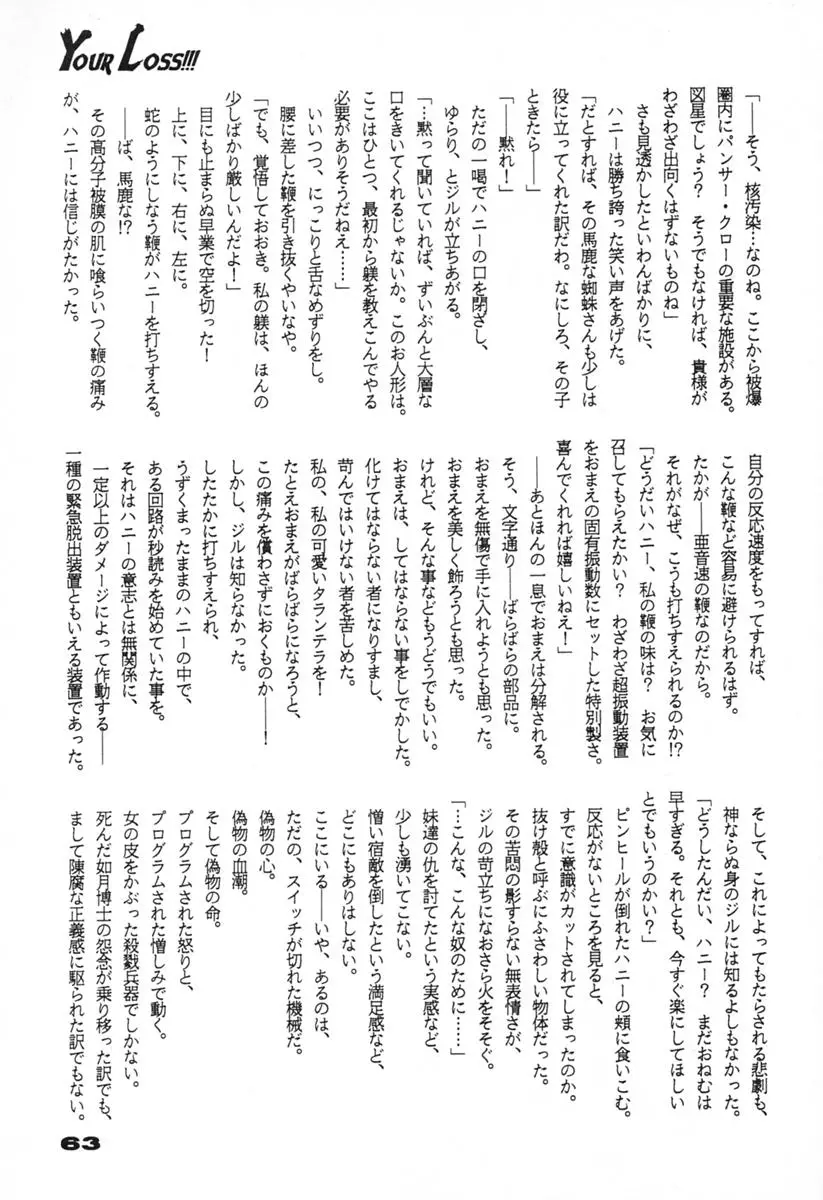 YOUR LOSS!!!
「――そう、核汚染…なのね。ここから被爆
圏内にパンサー・クローの重要な施設がある。
図星でしょう? そうでもなければ、貴様が
わざわざ出向くはずないものね」
さも見透かしたといわんばかりに、
ハニーは勝ち誇った笑い声をあげた。
「だとすれば、その馬鹿な蜘蛛さんも少しは
役に立ってくれた訳だわ。なにしろ、その子
ときたら――」
「――黙れ!」
ただの一喝でハニーの口を閉ざし、
ゆらり、とジルが立ちあがる。
「…黙って聞いていれば、ずいぶんと大層な
口をきいてくれるじゃないか。このお人形は。
ここはひとつ、最初から躾を教えこんでやる
必要がありそうだねえ……」
いいつつ、にっこりと舌なめずりをし。
腰に差した鞭を引き抜くやいなや。
「でも、覚悟しておおき。私の躾は、ほんの
少しばかり厳しいんだよ!」
目にも止まらぬ早業で空を切った!
上に、下に、右に、左に。
蛇のようにしなう鞭がハニーを打ちすえる。
――ば、馬鹿な!?
その高分子被膜の肌に喰らいつく鞭の痛み
が、ハニーには信じがたかった。
自分の反応速度をもってすれば、
こんな鞭など容易に避けられるはず。
たかが――亜音速の鞭なのだから。
それがなぜ、こうも打ちすえられるのか!?
「どうだいハニー、私の鞭の味は? お気に
召してもらえたかい? わざわざ超振動装置
をおまえの固有振動数にセットした特別製さ。
喜んでくれれば嬉しいねえ!」
――あとほんの一息でおまえは分解される。
そう、文字通り――ばらばらの部品に。
おまえを無傷で手に入れようとも思った。
おまえを美しく飾ろうとも思った。
けれど、そんな事などもうどうでもいい。
おまえは、してはならない事をしでかした。
化けてはならない者になりすまし、
苛んではいけない者を苦しめた。
私の、私の可愛いタランテラを!
たとえおまえがばらばらになろうと、
この痛みを償わさずにおくものか――!
しかし、ジルは知らなかった。
したたかに打ちすえられ、
うずくまったままのハニーの中で、
ある回路が秒読みを始めていた事を。
それはハニーの意志とは無関係に、
一定以上のダメージによって作動する――
一種の緊急脱出装置ともいえる装置であった。
そして、これによってもたらされる悲劇も、
神ならぬ身のジルには知るよしもなかった。
「どうしたんだい、ハニー? まだおねむは
早すぎる。それとも、今すぐ楽にしてほしい
とでもいうのかい?」
ピンヒールが倒れたハニーの頬に食いこむ。
反応がないところを見ると、
すでに意識がカットされてしまったのか。
抜け殻と呼ぶにふさわしい物体だった。
その苦悶の影すらない無表情さが、
ジルの苛立ちになおさら火をそそぐ。
「…こんな、こんな奴のために……」
妹達の仇を討てたという実感など、
少しも湧いてこない。
憎い宿敵を倒したという満足感など、
どこにもありはしない。
ここにいる――いや、あるのは、
ただの、スイッチが切れた機械だ。
偽物の心。
偽物の血潮。
そして偽物の命。
プログラムされた怒りと、
プログラムされた憎しみで動く。
女の皮をかぶった殺戮兵器でしかない。
死んだ如月博士の怨念が乗り移った訳でも、
まして陳腐な正義感に駆られた訳でもない。
63